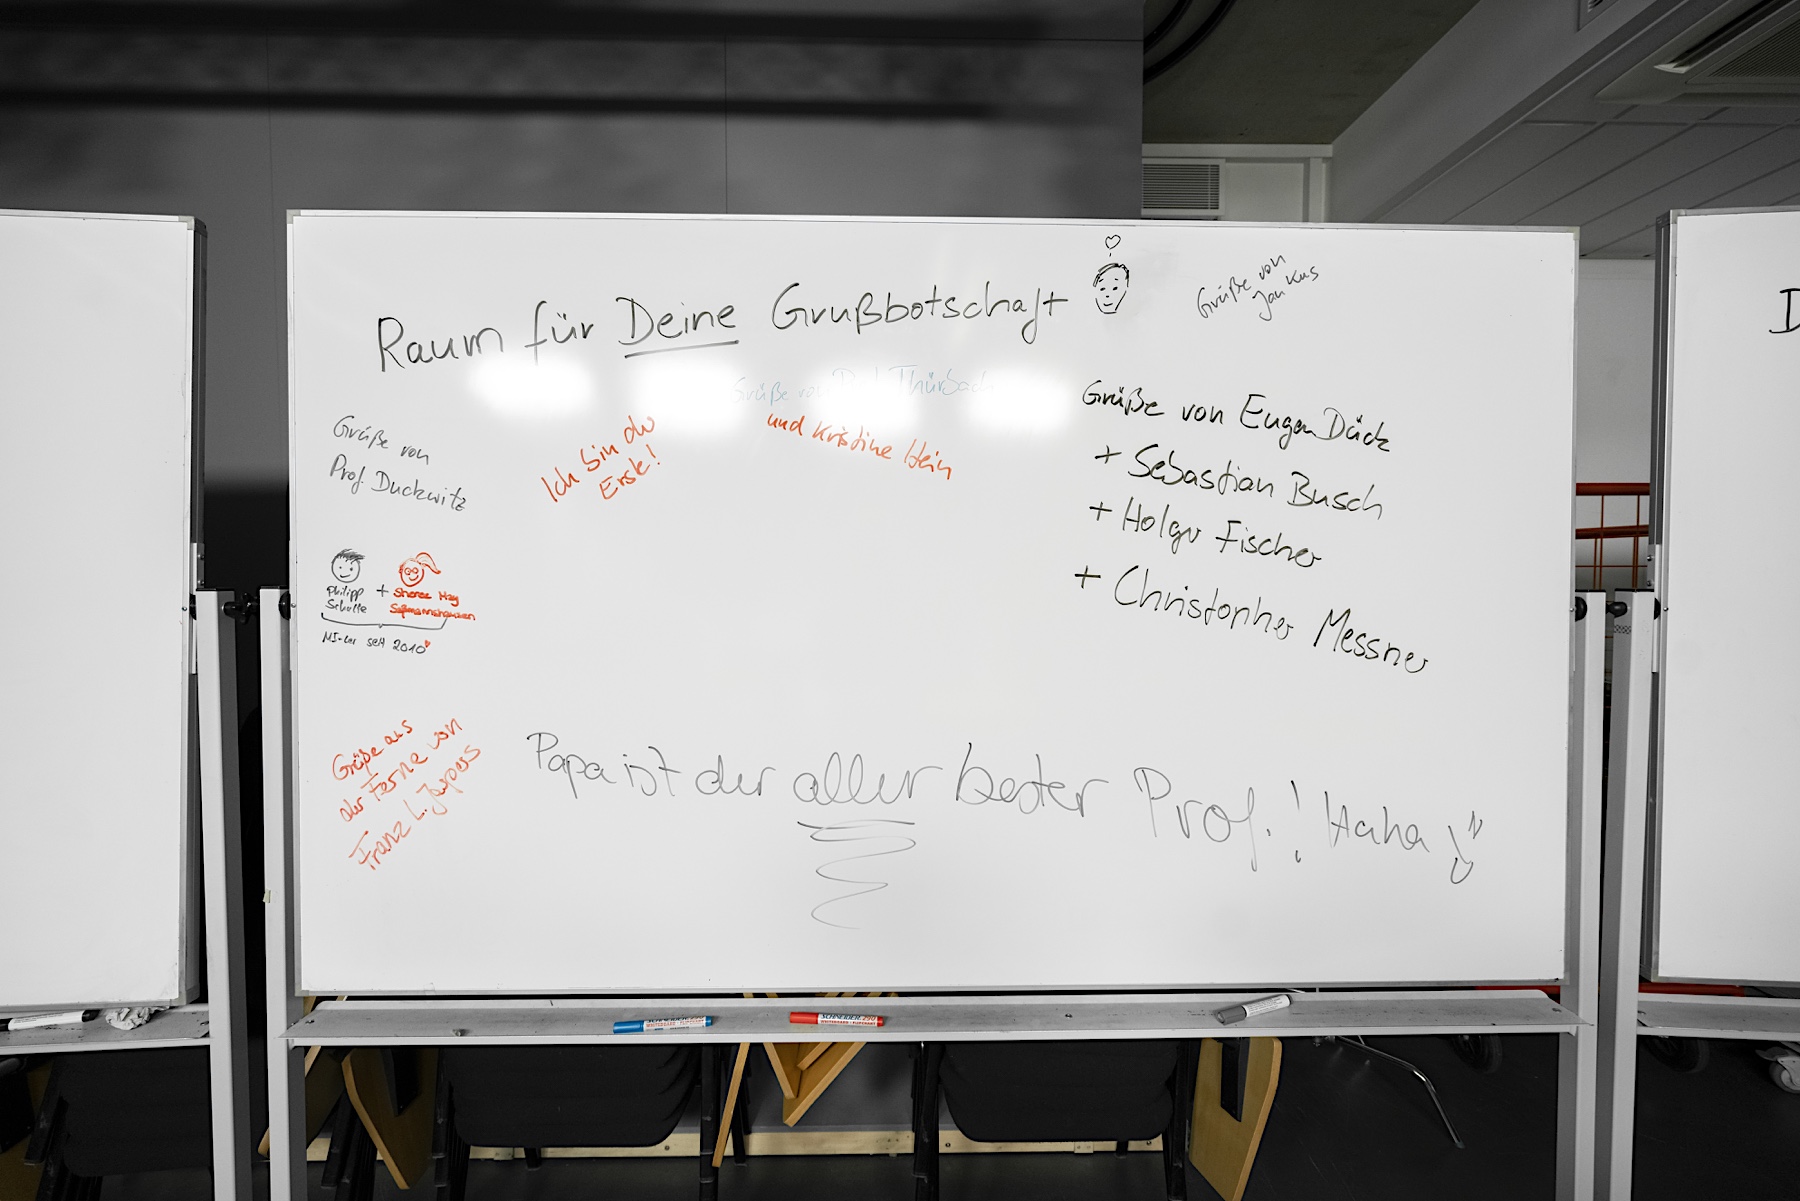 Raum für Deine Grußbotschaft
Grüße von
Jan Kus
Grüße von Prof. Thürbach
und Kristine Hein
Ich bin der
Erste!
Grüße von
Prof. Duckwitz
Grüße von Eugen Dück
+ Sebastian Busch
+ Holger Fischer
+ Christopher Messner
Philipp
Schulte
+
Sheree May
Saßmannshausen
MI-ler seit 2010
Grüße aus
der Ferne von
Franz L. Jaspers
Papa ist der aller bester Prof.! Haha
D
SCHNEIDER
SCHNEIDER 290